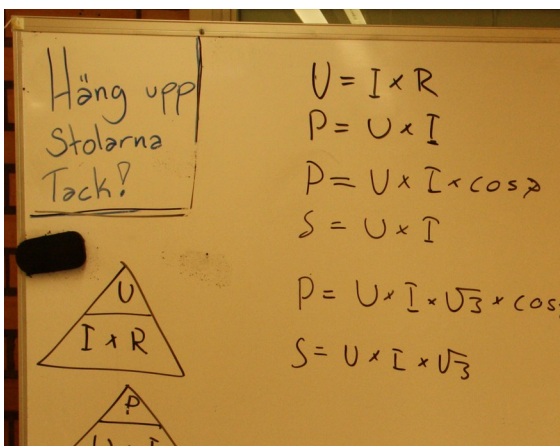 Häng upp
Stolarna
Tack!
U = I × R
P = U × I
P = U × I × cosφ
S = U × I
P = U × I × √3 × cos
S = U × I × √3
U
I × R
P
U × I